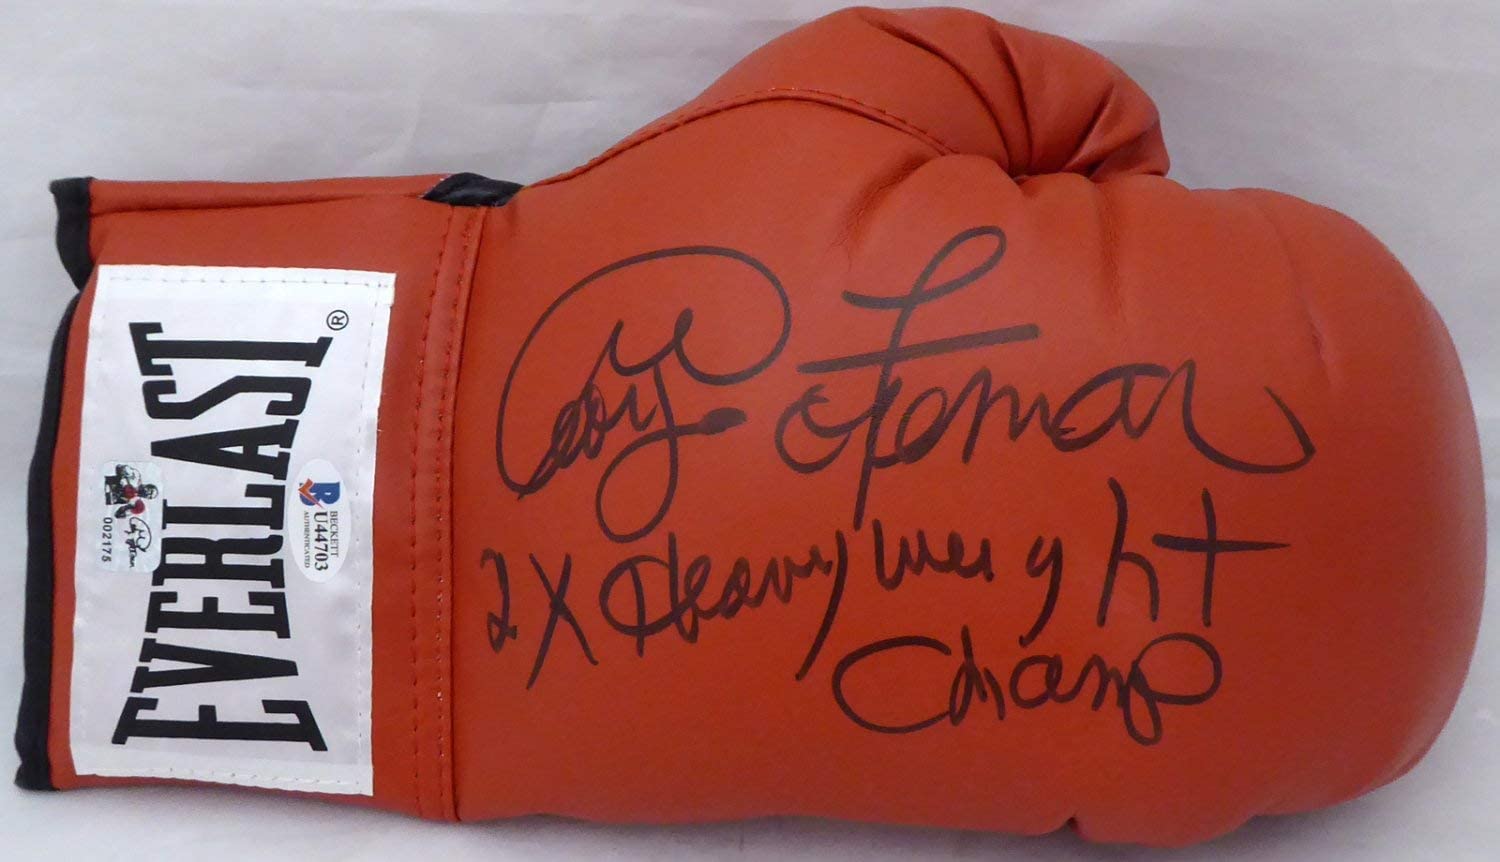 George Foreman
2X Heavyweight
Champ
EVERLAST®
BECKETT
U44703
AUTHENTICATED
002175